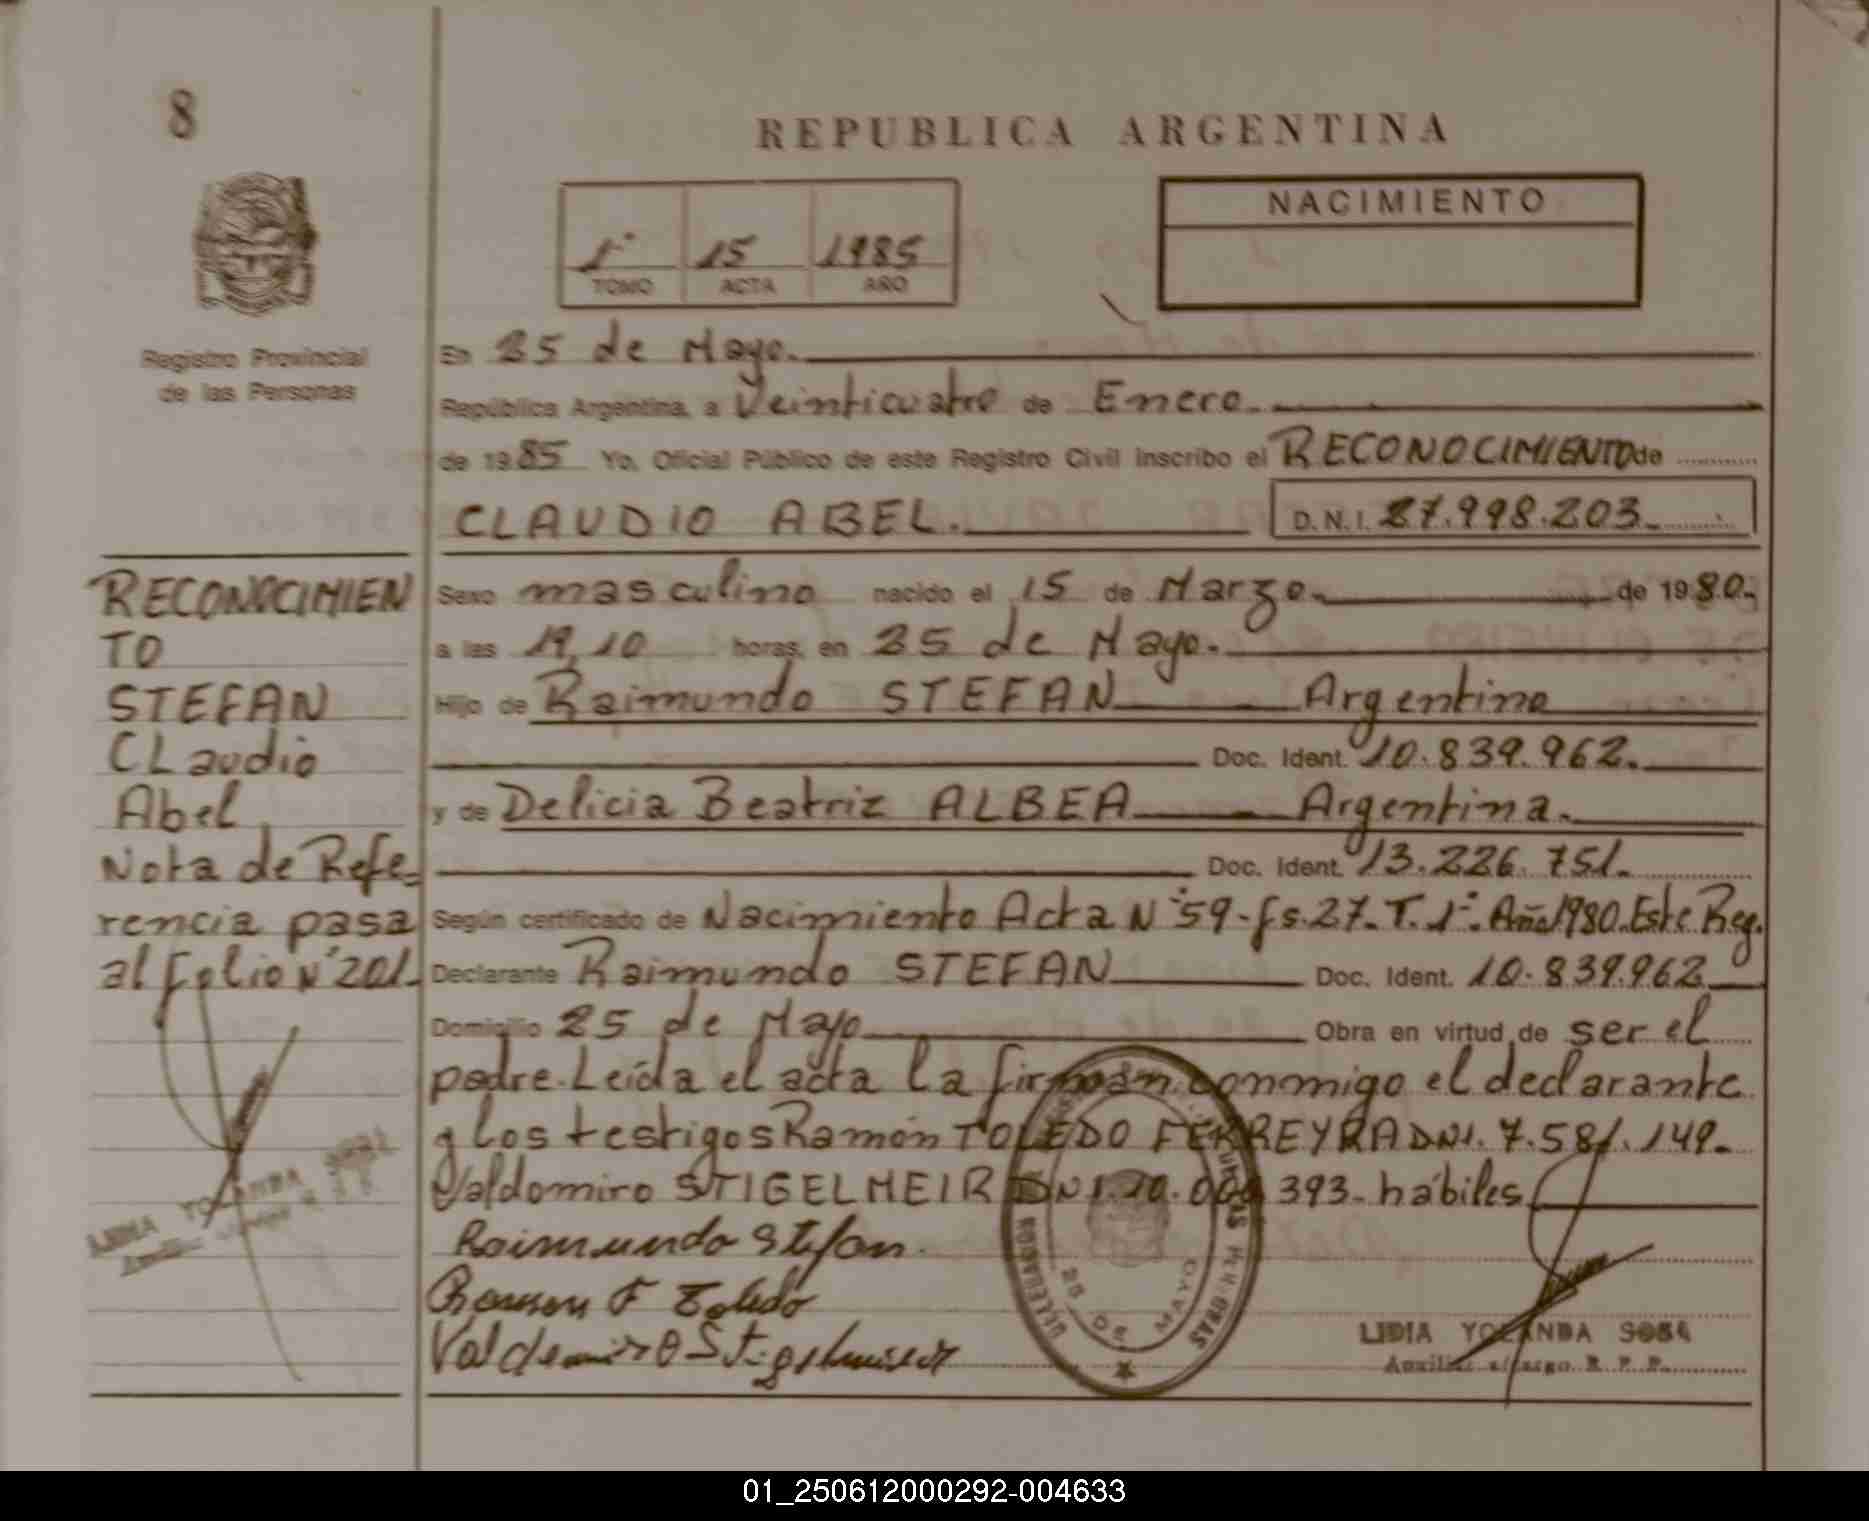 8
REPUBLICA ARGENTINA
NACIMIENTO
1° 15 1985
TOMO ACTA AÑO
Registro Provincial
de las Personas
En 25 de Mayo.
República Argentina, a Veinticuatro de Enero.
de 1985 Yo, Oficial Público de este Registro Civil inscribo el RECONOCIMIENTO de
CLAUDIO ABEL. D.N.I. 27.998.203.
RECONOCIMIEN
TO
STEFAN
CLaudio
Abel
Nota de Refe-
rencia pasa
al folio N°201.
Sexo masculino nacido el 15 de Marzo. de 1980.
a las 19,10 horas, en 25 de Mayo.
Hijo de Raimundo STEFAN Argentino
Doc. Ident. 10.839.962.
y de Delicia Beatriz ALBEA Argentina.
Doc. Ident. 13.226.751.
Según certificado de Nacimiento Acta N°59-fs.27-T.1°. Año1980.Este Reg.
Declarante Raimundo STEFAN Doc. Ident. 10.839.962
Domicilio 25 de Mayo Obra en virtud de ser el
padre. Leída el acta la firman conmigo el declarante
y los testigos Ramón TOLEDO FERREYRA DNI. 7.581.149.
Valdomiro STIGELMEIR DNI.10.000 393. hábiles
Raimundo Stefan.
Ramon F Toledo
LIDIA YOLANDA SOSA
Auxiliar a/cargo R. P. P.
LIDIA YOLANDA SOSA
25 DE MAYO
01_250612000292-004633